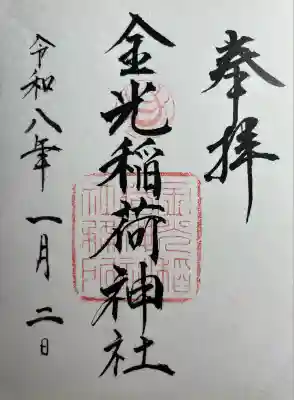 奉拝
金光稲荷神社
令和八年一月二日